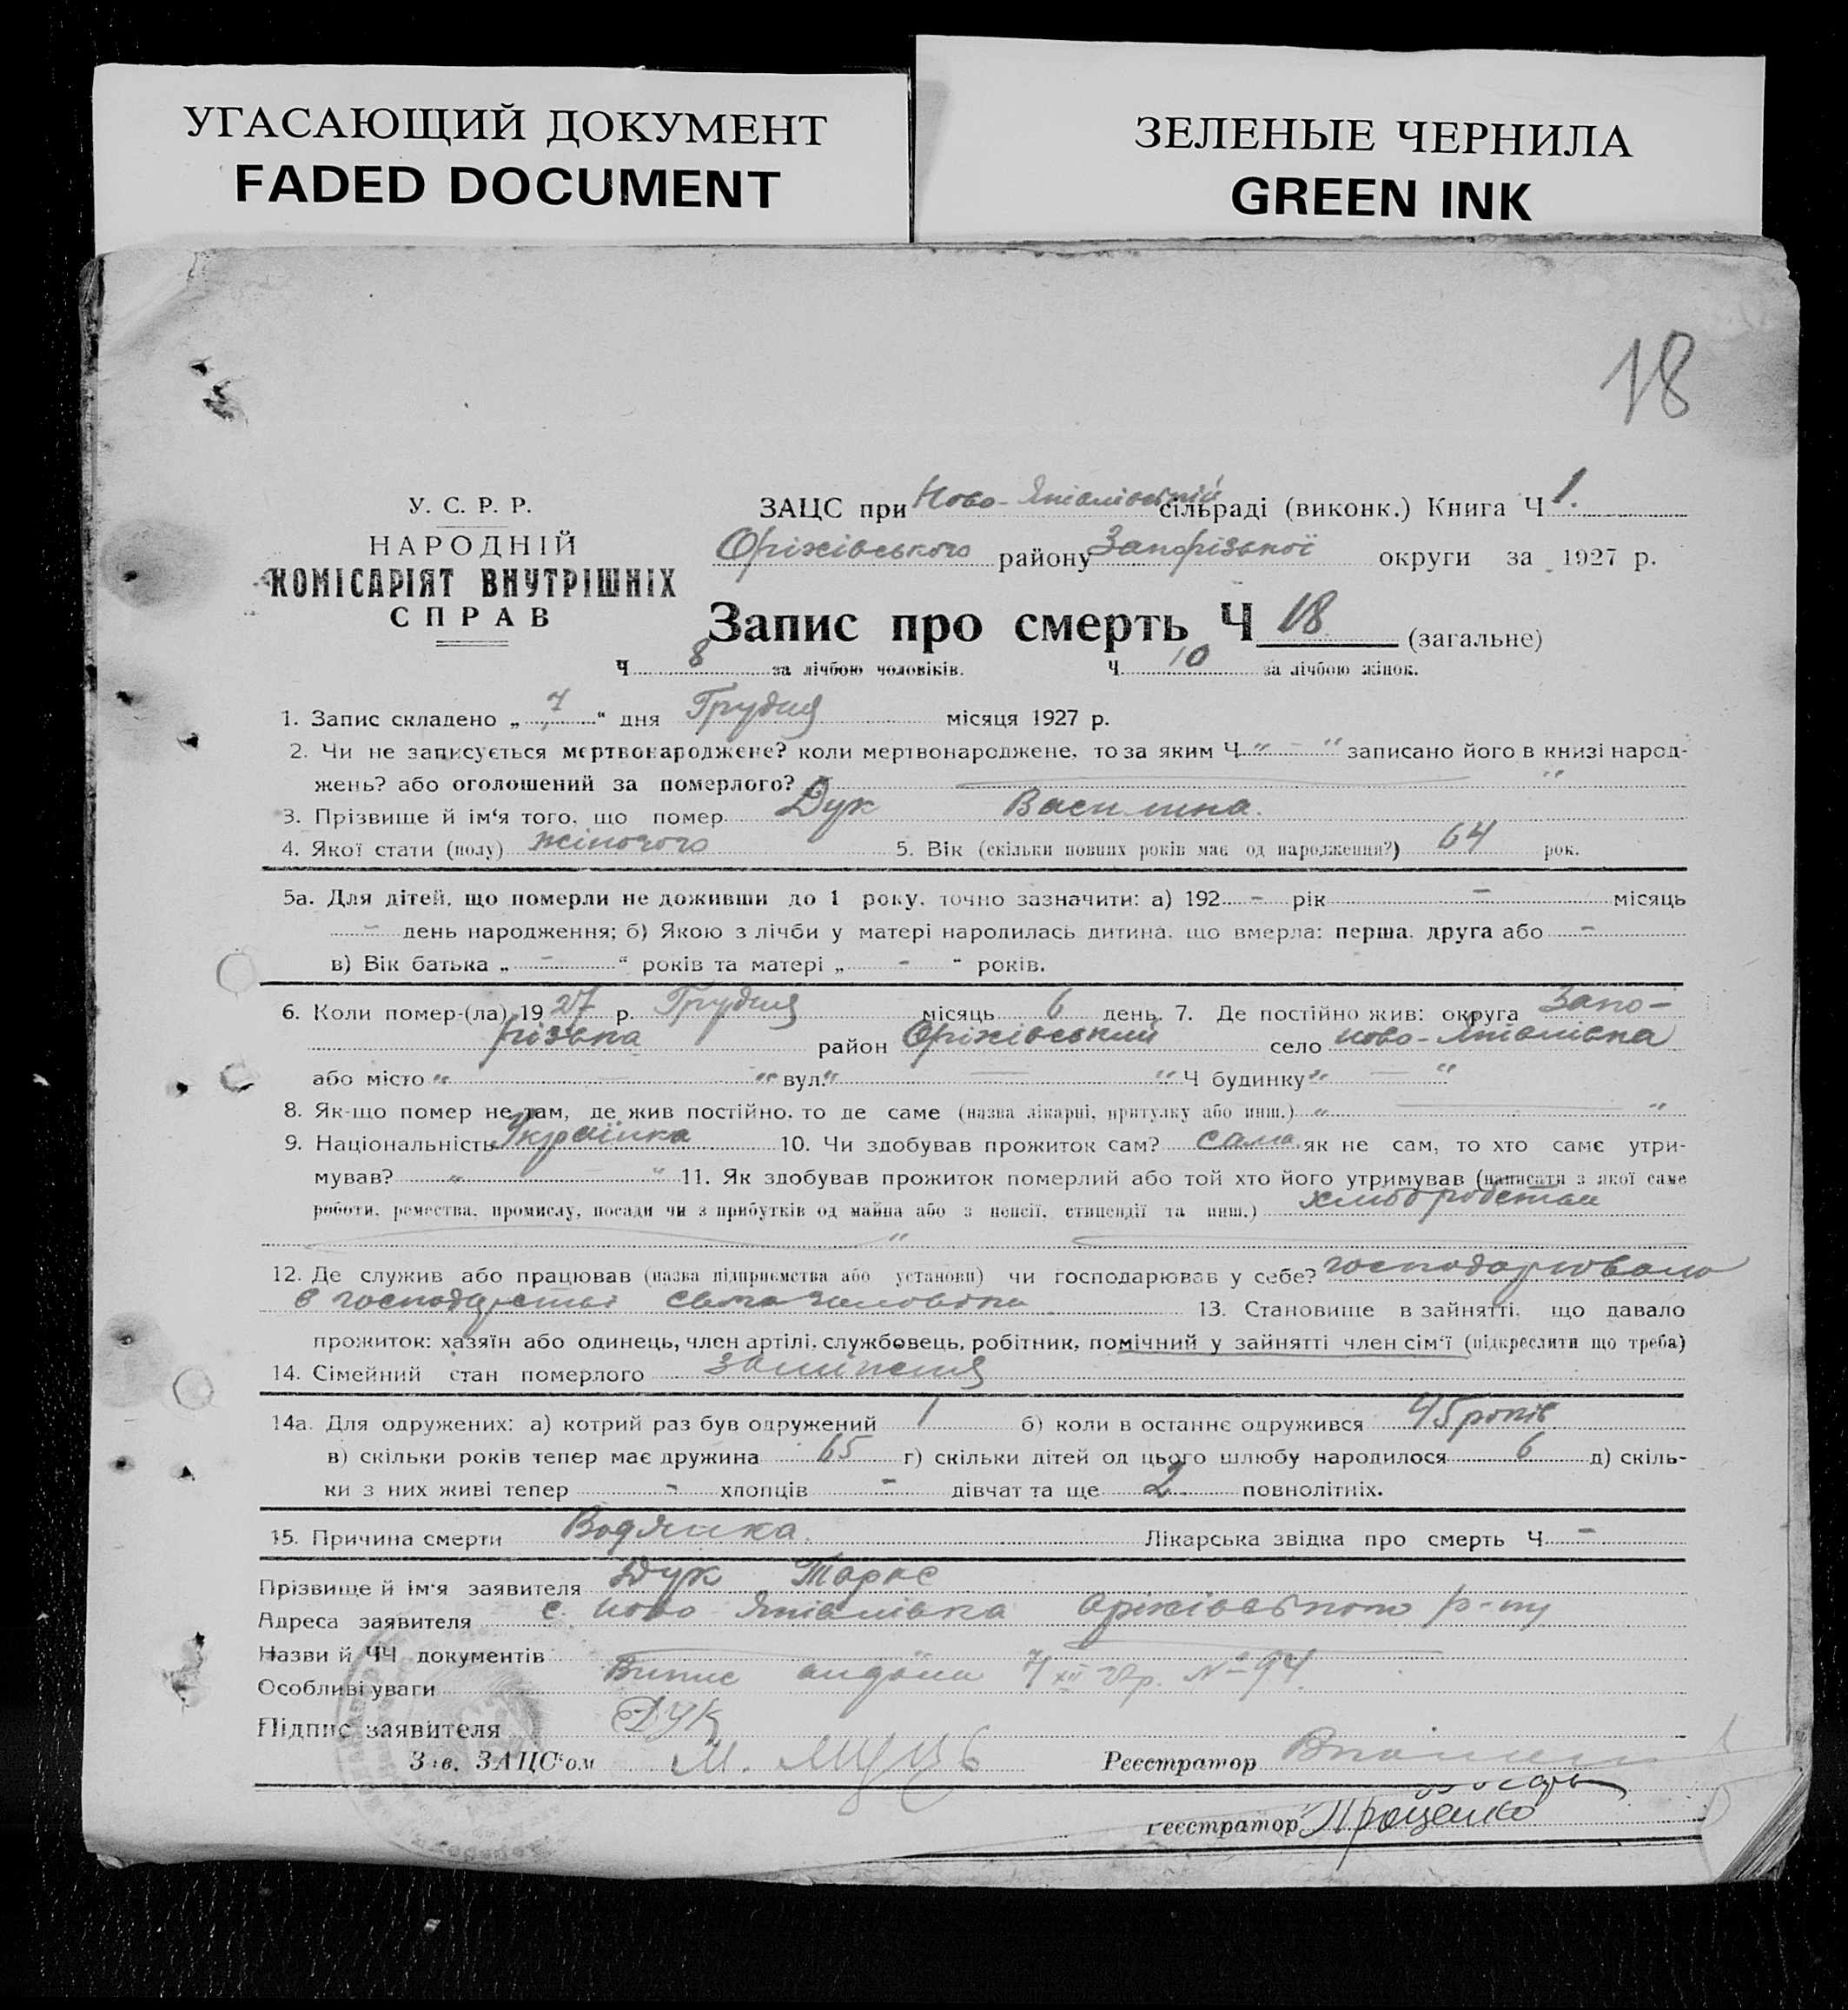 УГАСАЮЩИЙ ДОКУМЕНТ
FADED DOCUMENT
ЗЕЛЕНЫЕ ЧЕРНИЛА
GREEN INK
18
У. С. Р. Р.
НАРОДНІЙ
КОМІСАРІЯТ ВНУТРІШНІХ
СПРАВ
ЗАЦС при Ново-Яківлівській сільраді (виконк.) Книга Ч 1.
Оріхівського району Запорізької округи за 1927 р.
Запис про смерть Ч 18 (загальне)
Ч 8 за лічбою чоловіків. Ч 10 за лічбою жінок.
1. Запис складено „ 7 " дня Грудня місяця 1927 р.
2. Чи не записується мертвонароджене? коли мертвонароджене, то за яким Ч " – " записано його в книзі народ-
жень? або оголошений за померлого? "
3. Прізвище й ім'я того, що помер Дук Василина.
4. Якої стати (полу) жіночого 5. Вік (скільки повних років має од народження?) 64 рок.
5а. Для дітей, що померли не доживши до 1 року, точно зазначити: а) 192 - рік - місяць
- день народження; б) Якою з лічби у матері народилась дитина, що вмерла: перша, друга або -
в) Вік батька „ - " років та матері „ - " років.
6. Коли помер-(ла) 1927 р. Грудня місяць 6 день. 7. Де постійно жив: округа Запо-
різька район Оріхівський село Ново-Яківлівка
або місто " — " вул. " — " Ч будинку " — "
8. Як-що помер не там, де жив постійно, то де саме (назва лікарні, притулку або инш.) " — "
9. Національність Українка 10. Чи здобував прожиток сам? сама як не сам, то хто саме утри-
мував? " — " 11. Як здобував прожиток померлий або той хто його утримував (написати з якої саме
роботи, ремества, промислу, посади чи з прибутків од майна або з пенсії, стипендії та инш.) хліборобством
"
12. Де служив або працював (назва підприємства або установи) чи господарював у себе? господарювала
в господарстві свого чоловіка 13. Становище в зайнятті, що давало
прожиток: хазяїн або одинець, член артілі, службовець, робітник, помічний у зайнятті член сім'ї (підкреслити що треба)
14. Сімейний стан померлого заміжня
14а. Для одружених: а) котрий раз був одружений 1 б) коли в останнє одружився 45 років
в) скільки років тепер має дружина 65 г) скільки дітей од цього шлюбу народилося 6 д) скіль-
ки з них живі тепер - хлопців - дівчат та ще 2 повнолітніх.
15. Причина смерти Водянка. Лікарська звідка про смерть Ч -
Прізвище й ім'я заявителя Дук Тарас
Адреса заявителя с. Ново Яківлівка Оріхівського р-ну
Назви й ЧЧ документів
Особливі уваги Випис видано 7/XII 27р. № 94.
Підпис заявителя Дук
Зав. ЗАЦС'ом М.
Реєстратор
Реєстратор Проценко